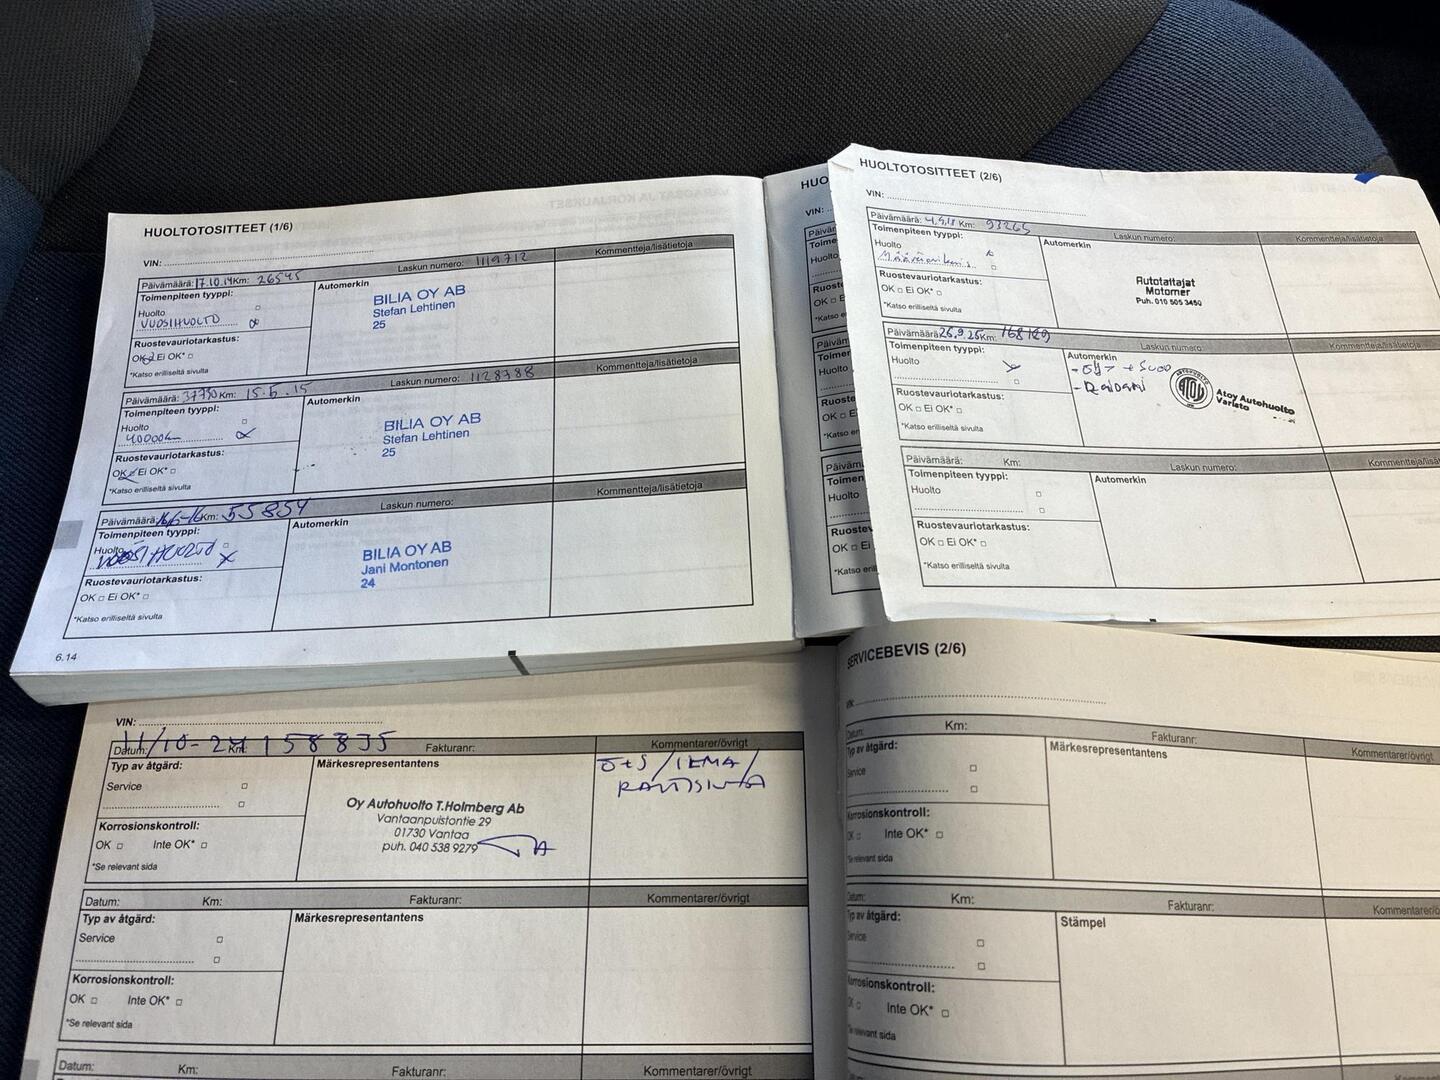 HUOLTOTOSITTEET (1/6)
VIN:
Päivämäärä: 17.10.14 Km: 26545 Laskun numero: 1119712 Kommentteja/lisätietoja
Toimenpiteen tyyppi: Automerkin
Huolto
VUOSIHUOLTO
BILIA OY AB
Stefan Lehtinen
25
Ruostevauriotarkastus:
OK Ei OK*
*Katso erilliseltä sivulta
Päivämäärä: 37750 Km: 15.5.15 Laskun numero: 1128788 Kommentteja/lisätietoja
Toimenpiteen tyyppi: Automerkin
Huolto
40000km
BILIA OY AB
Stefan Lehtinen
25
Ruostevauriotarkastus:
OK Ei OK*
*Katso erilliseltä sivulta
Päivämäärä: 16/5-16 Km: 55854 Laskun numero: Kommentteja/lisätietoja
Toimenpiteen tyyppi: Automerkin
Huolto
VUOSIHUOLTO
BILIA OY AB
Jani Montonen
24
Ruostevauriotarkastus:
OK Ei OK*
*Katso erilliseltä sivulta
6.14
HUO
VIN:
HUOLTOTOSITTEET (2/6)
VIN:
Päivämäärä: 4.4.18 Km: 93265 Laskun numero: Kommentteja/lisätietoja
Toimenpiteen tyyppi: Automerkin
Huolto
Autotaitajat
Motomer
Puh. 010 505 3450
Ruostevauriotarkastus:
OK Ei OK*
*Katso erilliseltä sivulta
Päivämäärä: 26.9.25 Km: 168129 Laskun numero: Kommentteja/lisätietoja
Toimenpiteen tyyppi: Automerkin
Huolto
- Öljy + Suod
- Raidari
ATOY
Atoy Autohuolto
Varisto
Ruostevauriotarkastus:
OK Ei OK*
*Katso erilliseltä sivulta
Päivämäärä: Km: Laskun numero: Kommentteja/lisätietoja
Toimenpiteen tyyppi: Automerkin
Huolto
Ruostevauriotarkastus:
OK Ei OK*
*Katso erilliseltä sivulta
VIN:
Datum: 11/10-24 Km: 158835 Fakturanr: Kommentarer/övrigt
Typ av åtgärd: Märkesrepresentantens
Ö+S/ILMA/
RAITISILMA
Service
Oy Autohuolto T.Holmberg Ab
Vantaanpuistontie 29
01730 Vantaa
puh. 040 538 9279
Korrosionskontroll:
OK Inte OK*
*Se relevant sida
Datum: Km: Fakturanr: Kommentarer/övrigt
Typ av åtgärd: Märkesrepresentantens
Service
Korrosionskontroll:
OK Inte OK*
*Se relevant sida
Datum: Km: Fakturanr: Kommentarer/övrigt
SERVICEBEVIS (2/6)
VIN:
Datum: Km: Fakturanr: Kommentarer/övrigt
Typ av åtgärd: Märkesrepresentantens
Service
Korrosionskontroll:
OK Inte OK*
*Se relevant sida
Datum: Km: Fakturanr: Kommentarer/ö
Typ av åtgärd: Stämpel
Service
Korrosionskontroll:
OK Inte OK*
*Se relevant sida
Datum: Km: Fakturanr: